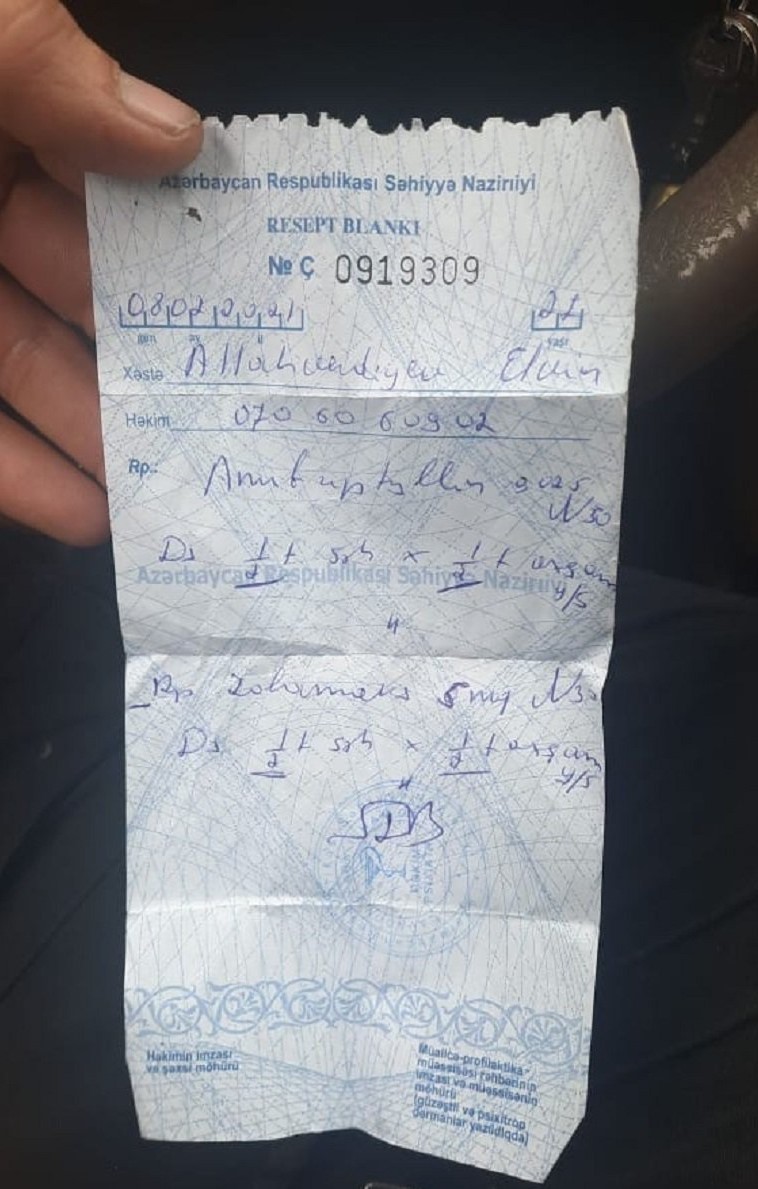 Azərbaycan Respublikası Səhiyyə Nazirliyi
RESEPT BLANKI
№ Ç 0919309
08 02 2021 21
gün ay il yaşı
Xəstə Allahverdiyev Elvin
Həkim 070 60 609 02
Rp.:
N30
Ds 1/2 t səh x 1/2 t axşam
Azərbaycan Respublikası Səhiyyə Nazirliyi
y/s
Rp 5 mg N30
Ds 1/2 t səh x 1/2 t axşam
y/s
Həkimin imzası
və şəxsi möhürü
Müalicə-profilaktika
müəssisəsi rəhbərinin
imzası və müəssisənin
möhürü
(güzəştli və psixitrop
dərmanlar yazıldıqda)